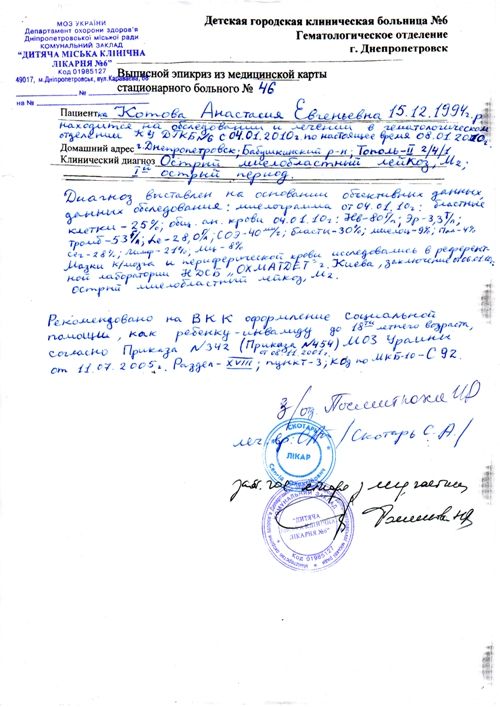 МОЗ УКРАЇНИ
Департамент охорони здоров'я
Дніпропетровської міської ради
КОМУНАЛЬНИЙ ЗАКЛАД
"ДИТЯЧА МІСЬКА КЛІНІЧНА
ЛІКАРНЯ №6"
Код 01985127
49017, м.Дніпропетровськ, вул.Караваєва, 68
№
на №
Детская городская клиническая больница №6
Гематологическое отделение
г. Днепропетровск
Выписной эпикриз из медицинской карты
стационарного больного № 46
Пациентка Котова Анастасия Евгеньевна 15.12.1994г.р
находится на обследовании и лечении в гематологическом
отделении КУ ДГКБ№6 с 04.01.2010г по настоящее время 08.01.2010г.
Домашний адрес г.Днепропетровск; Бабушкинский р-н; Тополь-II 2/4/1
Клинический диагноз Острый миелобластный лейкоз, М2;
Iый острый период
Диагноз выставлен на основании объективных данных
данных обследования: миелограмма от 04.01.10г: бластные
клетки - 25%; общ. ан. крови 04.01.10г: Hв-80г/л; Эр-3,3Т/л;
Тромб-53Г/л; Le-28,0Г/л; СОЭ-40мм/ч; бласты-30%; миелоц-9%; Пал-4%
Сег-28%; Лимф-21%; Мц-8%
Мазки к/мозга и периферической крови исследовались в референт-
ной лаборатории НДСБ "ОХМАТДЕТ" г. Киева, заключение от 06.01.10г.
Острый миелобластный лейкоз, М2.
Рекомендовано на ВКК оформление социальной
помощи, как ребенку-инвалиду до 18ти летнего возраста,
согласно Приказа №342 (Приказа №454) МОЗ Украины
от 08.11.2001г.
от 11.07.2005г. Раздел-XVIII; пункт-3; код по МКБ-10-С92.
З/отд
леч. вр. /Скотарь С.А/
СКОТАРЬ
ЛІКАР
КОМУНАЛЬНИЙ ЗАКЛАД
"ДИТЯЧА
МІСЬКА КЛІНІЧНА
ЛІКАРНЯ №6"
Код 01985127